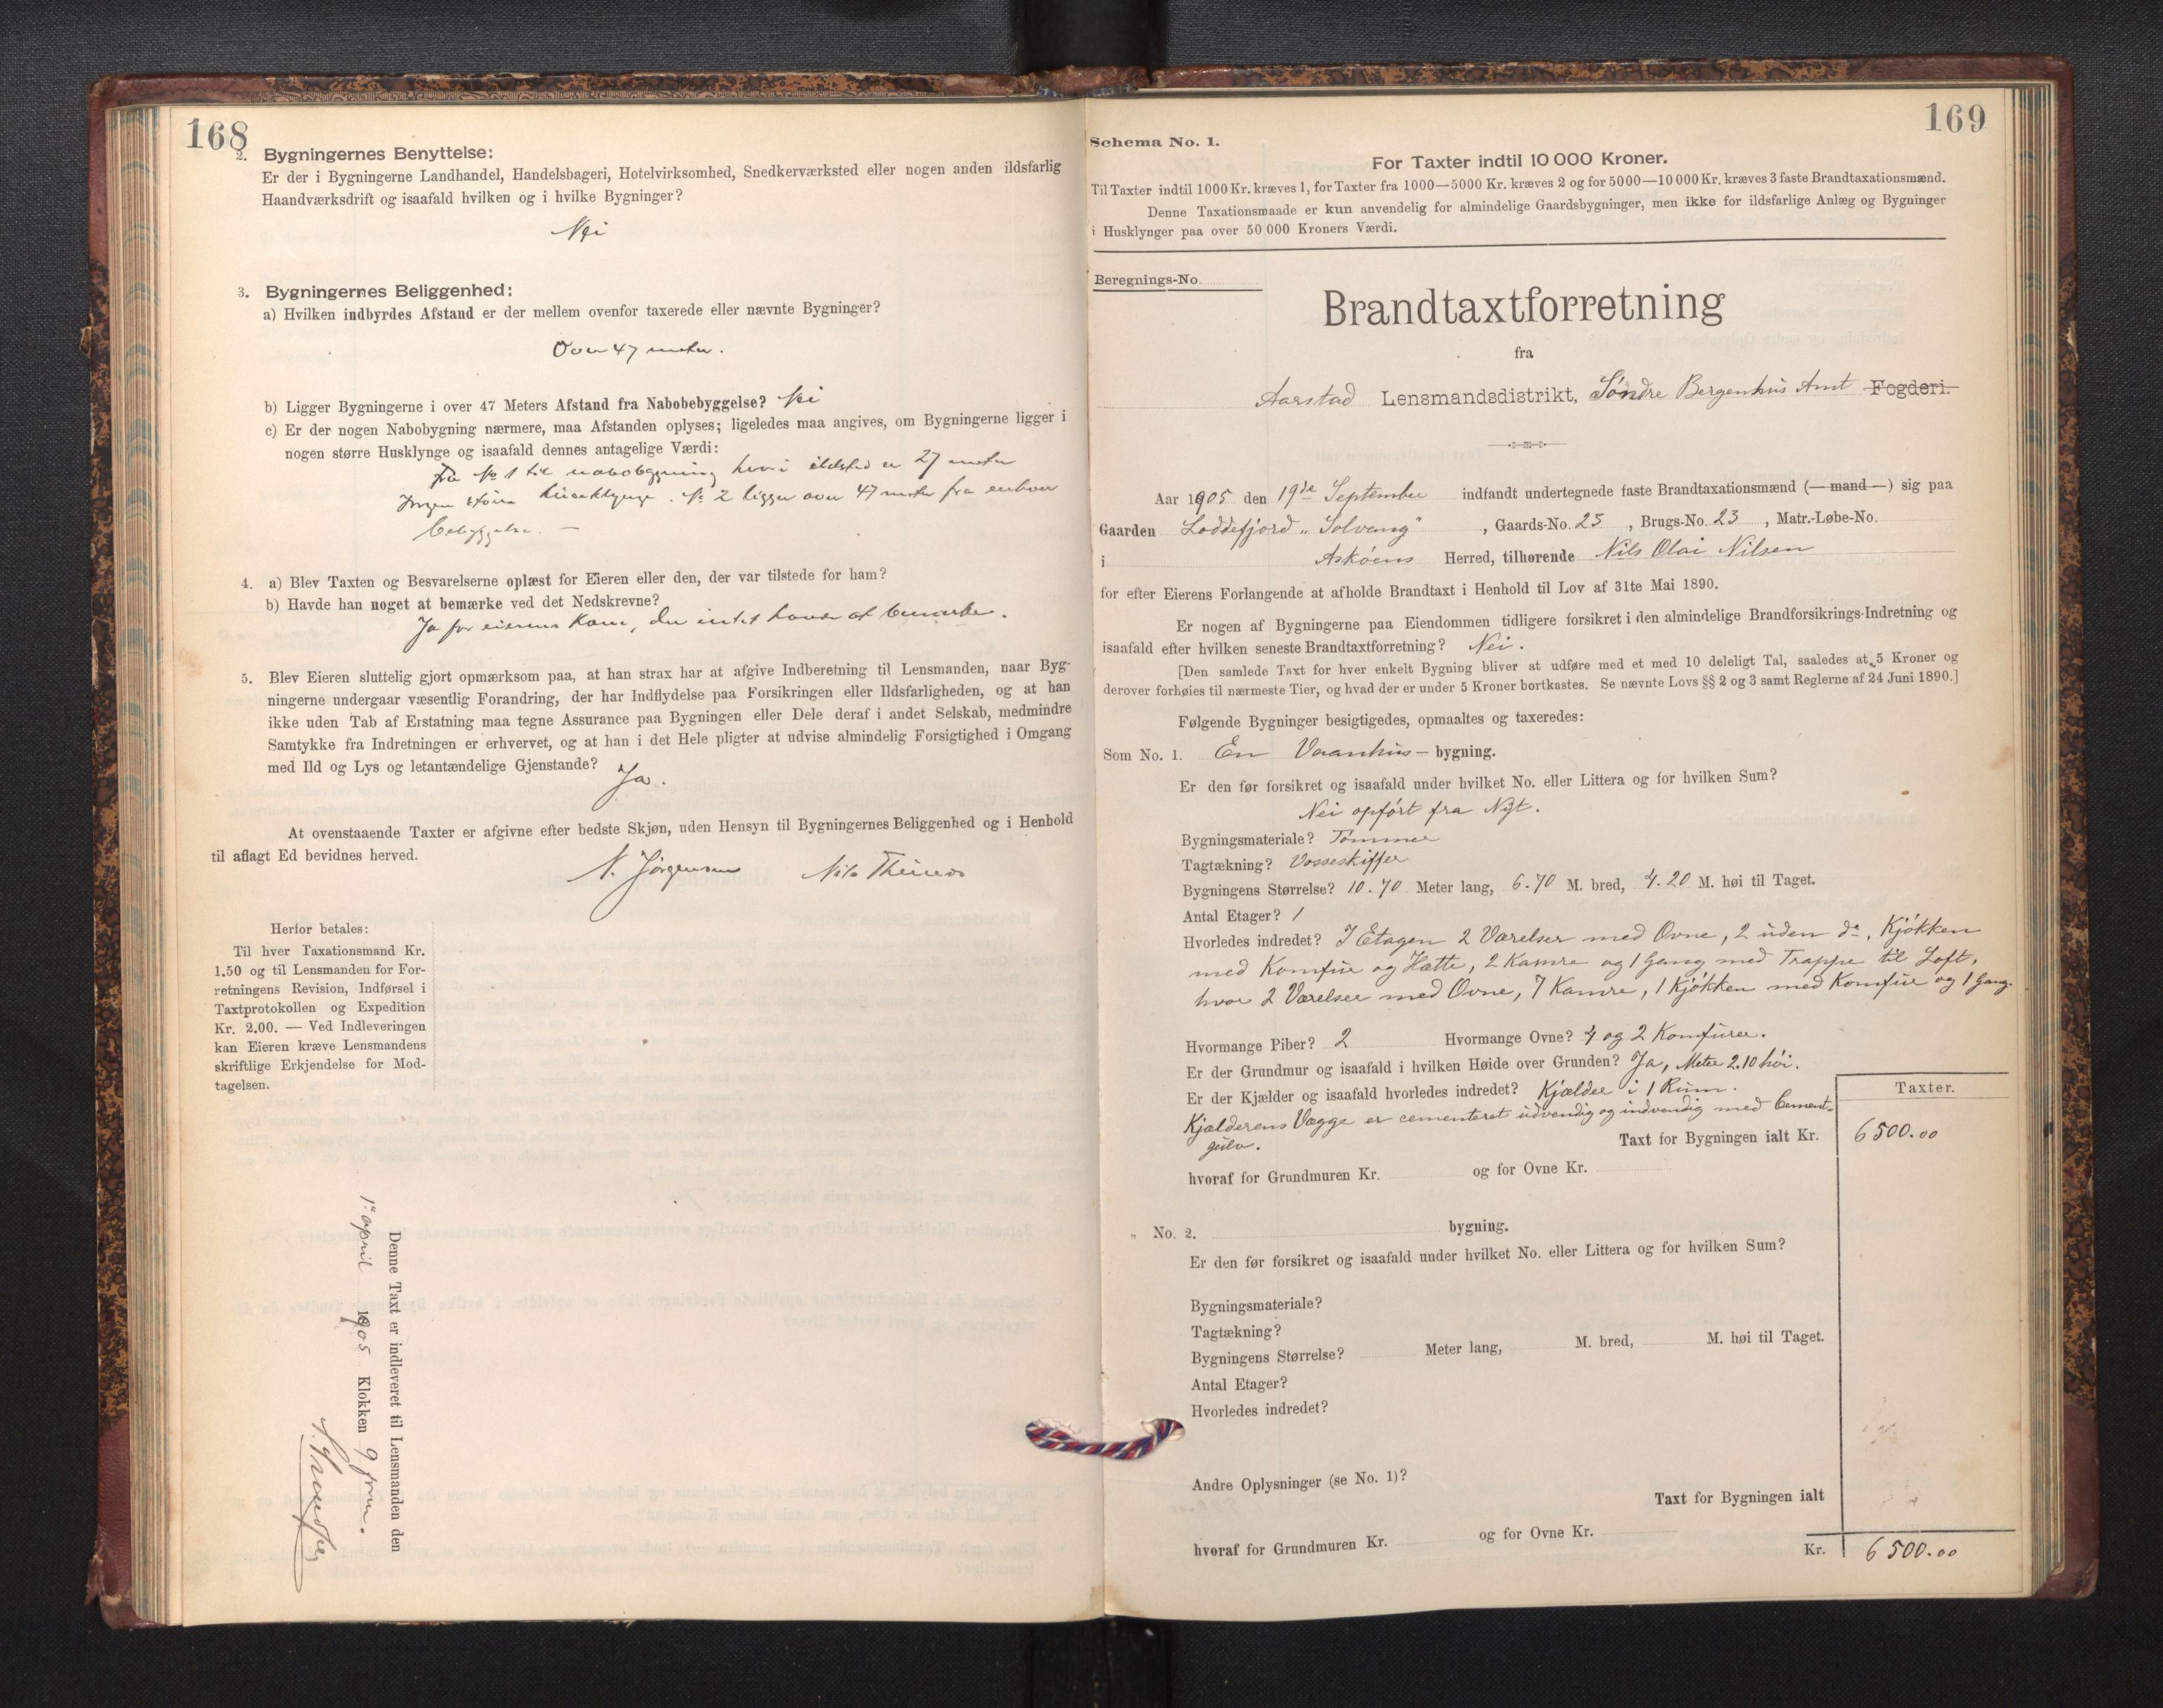 168
2. Bygningernes Benyttelse:
Er der i Bygningerne Landhandel, Handelsbageri, Hotelvirksomhed, Snedkerværksted eller nogen anden ildsfarlig
Haandværksdrift og isaafald hvilken og i hvilke Bygninger?
Nei
3. Bygningernes Beliggenhed:
a) Hvilken indbyrdes Afstand er der mellem ovenfor taxerede eller nævnte Bygninger?
Over 47 meter.
b) Ligger Bygningerne i over 47 Meters Afstand fra Nabobebyggelse? Nei
c) Er der nogen Nabobygning nærmere, maa Afstanden oplyses; ligeledes maa angives, om Bygningerne ligger i
nogen større Husklynge og isaafald dennes antagelige Værdi:
Fra No 1 til nabobygning hvori ildsted er 27 meter
Ingen større husklynge. No 2 ligger over 47 meter fra enhver
bebyggelse. —
4. a) Blev Taxten og Besvarelserne oplæst for Eieren eller den, der var tilstede for ham?
b) Havde han noget at bemærke ved det Nedskrevne?
Ja for eierens Kone, der intet havde at bemærke.
5. Blev Eieren sluttelig gjort opmærksom paa, at han strax har at afgive Indberetning til Lensmanden, naar Byg-
ningerne undergaar væsentlig Forandring, der har Indflydelse paa Forsikringen eller Ildsfarligheden, og at han
ikke uden Tab af Erstatning maa tegne Assurance paa Bygningen eller Dele deraf i andet Selskab, medmindre
Samtykke fra Indretningen er erhvervet, og at han i det Hele pligter at udvise almindelig Forsigtighed i Omgang
med Ild og Lys og letantændelige Gjenstande? Ja.
At ovenstaaende Taxter er afgivne efter bedste Skjøn, uden Hensyn til Bygningernes Beliggenhed og i Henhold
til aflagt Ed bevidnes herved.
N. Jørgensen Nils
Herfor betales:
Til hver Taxationsmand Kr.
1.50 og til Lensmanden for For-
retningens Revision, Indførsel i
Taxtprotokollen og Expedition
Kr. 2.00. — Ved Indleveringen
kan Eieren kræve Lensmandens
skriftlige Erkjendelse for Mod-
tagelsen.
Denne Taxt er indleveret til Lensmanden den
1ste april 1905 Klokken 9 form.
169
Schema No. 1.
For Taxter indtil 10 000 Kroner.
Til Taxter indtil 1000 Kr. kræves 1, for Taxter fra 1000—5000 Kr. kræves 2 og for 5000—10 000 Kr. kræves 3 faste Brandtaxationsmænd.
Denne Taxationsmaade er kun anvendelig for almindelige Gaardsbygninger, men ikke for ildsfarlige Anlæg og Bygninger
i Husklynger paa over 50 000 Kroners Værdi.
Beregnings-No.
Brandtaxtforretning
fra
Aarstad Lensmandsdistrikt, Søndre Bergenhus Amt Fogderi.
Aar 1905 den 19de September indfandt undertegnede faste Brandtaxationsmænd (—mand—) sig paa
Gaarden Loddefjord „Solvang", Gaards-No. 23, Brugs-No. 23, Matr.-Løbe-No.
i Askøens Herred, tilhørende Nils Olai Nilsen
for efter Eierens Forlangende at afholde Brandtaxt i Henhold til Lov af 31te Mai 1890.
Er nogen af Bygningerne paa Eiendommen tidligere forsikret i den almindelige Brandforsikrings-Indretning og
isaafald efter hvilken seneste Brandtaxtforretning? Nei.
[Den samlede Taxt for hver enkelt Bygning bliver at udføre med et med 10 deleligt Tal, saaledes at 5 Kroner og
derover forhøies til nærmeste Tier, og hvad der er under 5 Kroner bortkastes. Se nævnte Lovs §§ 2 og 3 samt Reglerne af 24 Juni 1890.]
Følgende Bygninger besigtigedes, opmaaltes og taxeredes:
Som No. 1. En Vaanhus- bygning.
Er den før forsikret og isaafald under hvilket No. eller Littera og for hvilken Sum?
Nei opført fra Nyt.
Bygningsmateriale? Tømmer
Tagtækning? Vosseskiffer
Bygningens Størrelse? 10.70 Meter lang, 6.70 M. bred, 4.20 M. høi til Taget.
Antal Etager? 1
Hvorledes indredet? I Etagen 2 Værelser med Ovne, 2 uden do, Kjøkken
med Komfur og Hætte, 2 Kamre og 1 Gang med Trappe til Loft,
hvor 2 Værelser med Ovne, 7 Kamre, 1 Kjøkken med Komfur og 1 Gang.
Hvormange Piber? 2 Hvormange Ovne? 4 og 2 Komfurer.
Er der Grundmur og isaafald i hvilken Høide over Grunden? Ja, Meter 2.10 høi.
Er der Kjælder og isaafald hvorledes indredet? Kjælder i 1 Rum.
Kjælderens Vægge er cementeret udvendig og indvendig med Cement-
gulv.
Taxter.
Taxt for Bygningen ialt Kr. 6500.00
hvoraf for Grundmuren Kr. og for Ovne Kr.
„ No. 2. bygning.
Er den før forsikret og isaafald under hvilket No. eller Littera og for hvilken Sum?
Bygningsmateriale?
Tagtækning?
Bygningens Størrelse? Meter lang, M. bred, M. høi til Taget.
Antal Etager?
Hvorledes indredet?
Andre Oplysninger (se No. 1)?
Taxt for Bygningen ialt
hvoraf for Grundmuren Kr. og for Ovne Kr.
Kr. 6500.00